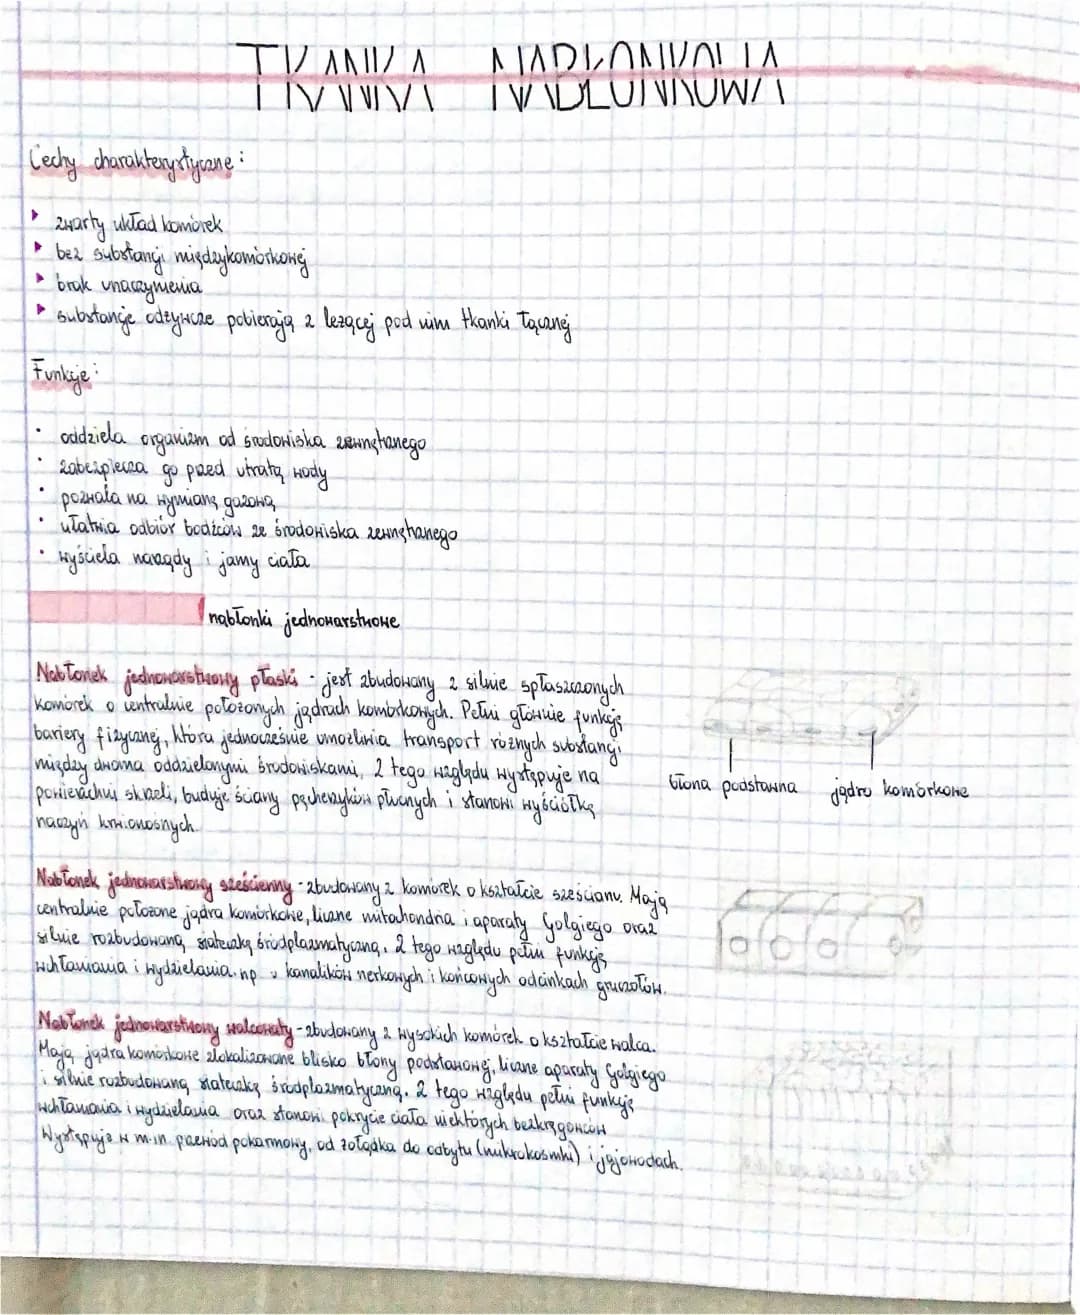 TKANKA NABŁONKOWA
Cechy charakterystyczne:
zwarty układ komórek
bez substancji międzykomórkowej
brak unaczynienia
substancje odżywcze pobierają z leżącej pod nim tkanki łącznej
Funkcje:
oddziela organizm od środowiska zewnętrznego
zabezpiecza go przed utratą wody
pozwala na wymianę gazową
ułatwia odbiór bodźców ze środowiska zewnętrznego
wyściela narządy i jamy ciała
nabłonki jednowarstwowe
Nabłonek jednowarstwowy płaski - jest zbudowany z silnie spłaszczonych
komórek o centralnie położonych jądrach komórkowych. Pełni głównie funkcję
bariery fizycznej, która jednocześnie umożliwia transport różnych substancji
między dwoma oddzielonymi środowiskami, Z tego względu występuje na
powierzchni skrzeli, buduje ściany pęcherzyków płucnych i stanowi wyściółkę
naczyń krwionośnych.
błona podstawna jądro komórkowe
Nabłonek jednowarstwowy sześcienny - zbudowany z komórek o kształcie sześcianu. Mają
centralnie położone jądra komórkowe, liczne mitochondria i aparaty Golgiego oraz
silnie rozbudowaną siateczkę śródplazmatyczną. Z tego względu pełni funkcję
wchłaniania i wydzielania. np w kanalików nerkowych i końcowych odcinkach gruczołów.
Nabłonek jednowarstwowy walcowaty - zbudowany z wysokich komórek o kształcie walca.
Mają jądra komórkowe zlokalizowane blisko błony podstawowej, liczne aparaty Golgiego
i silnie rozbudowaną siateczkę śródplazmatyczną. Z tego względu pełni funkcję
wchłaniania i wydzielania oraz stanowi pokrycie ciała niektórych bezkręgowców
Występuje w m.in. przewód pokarmowy, od żołądka do odbytu (mikrokosmki) i jajowodach.